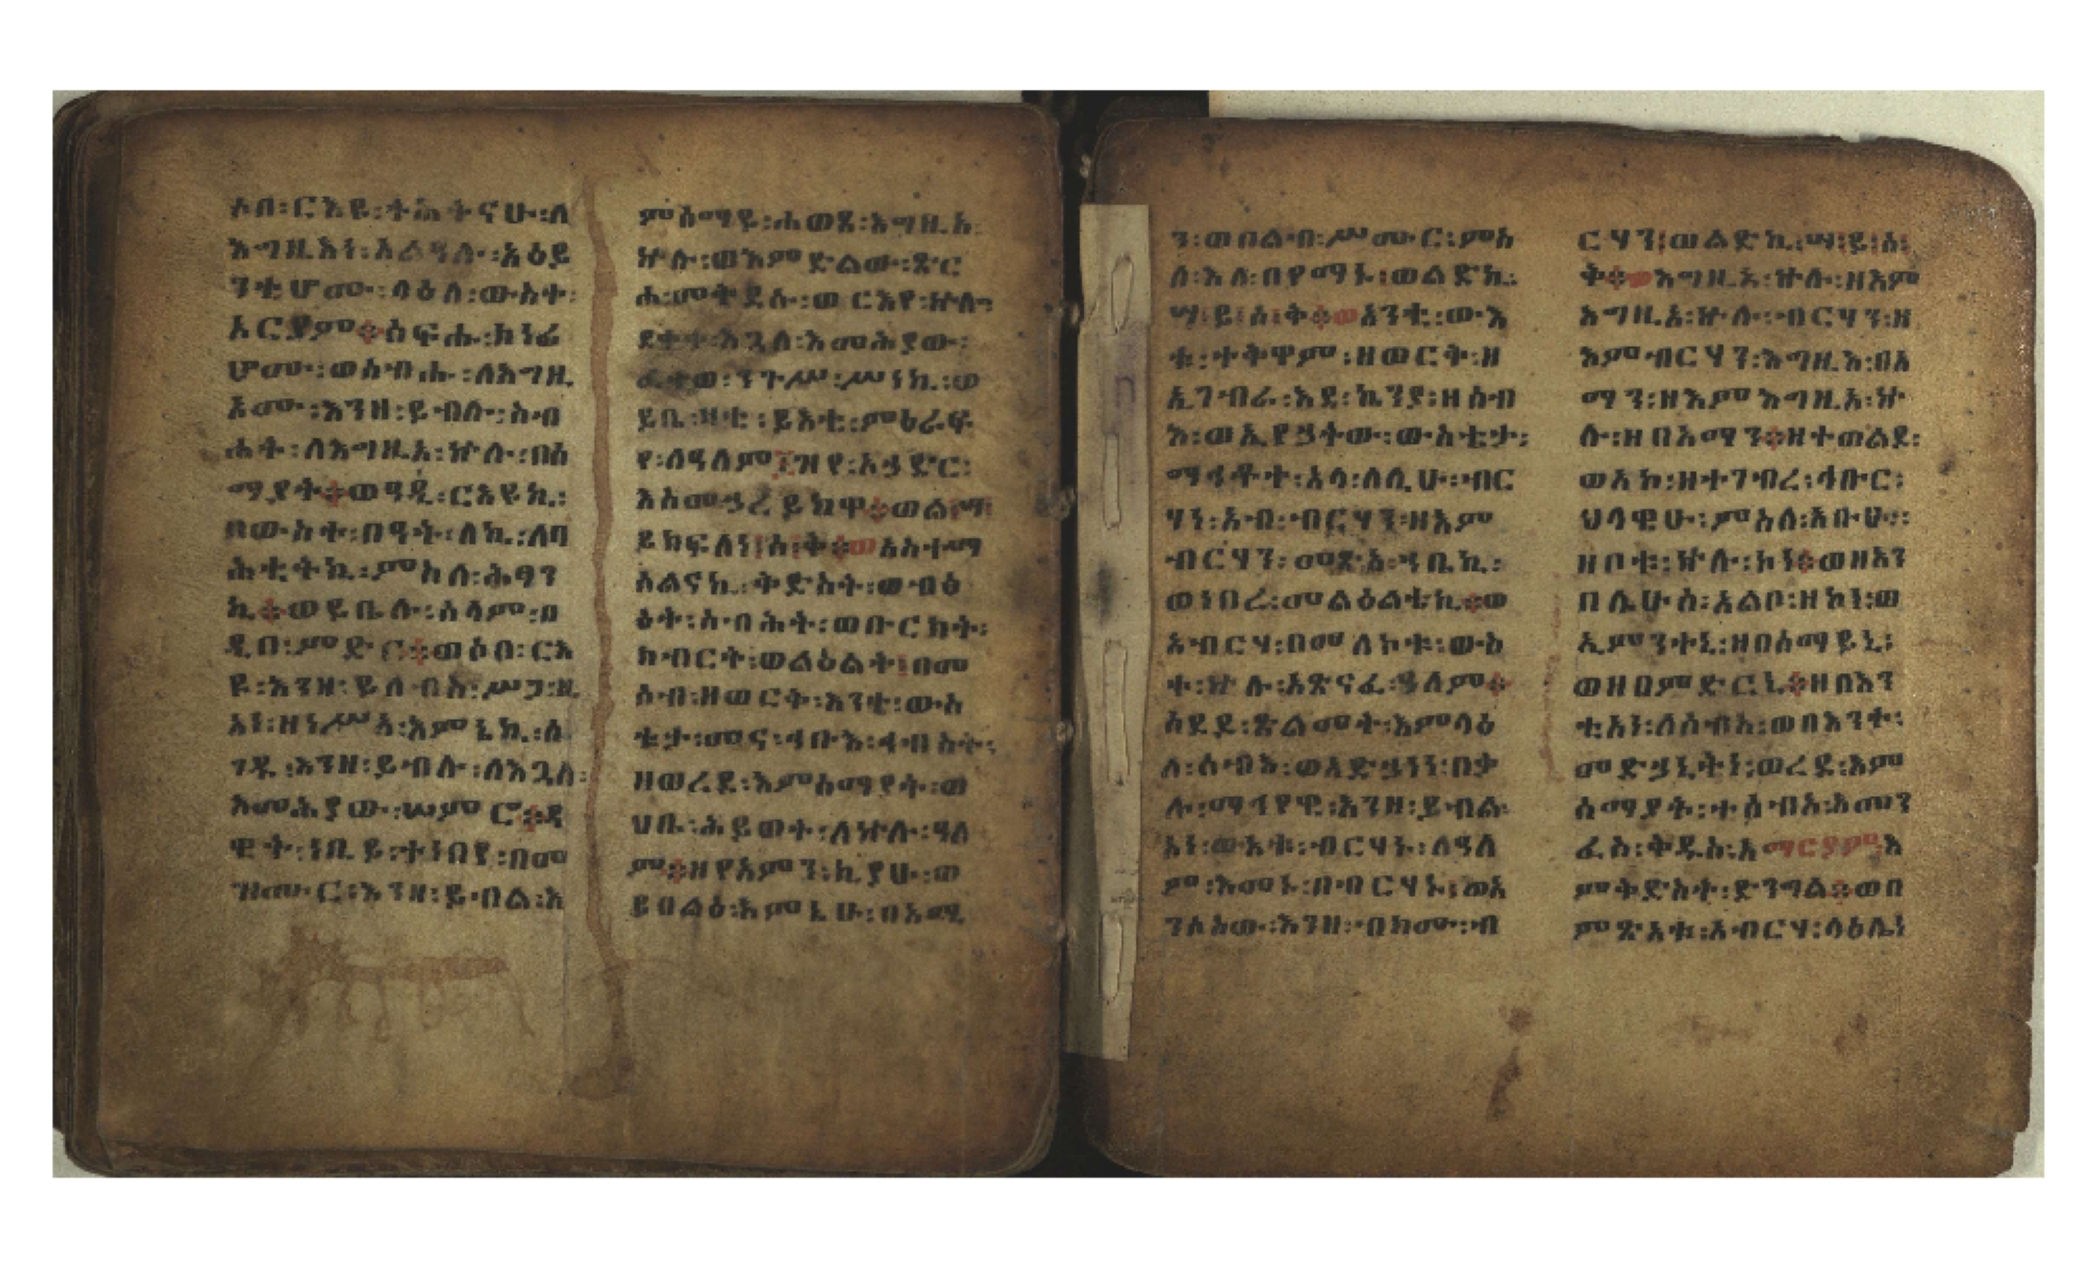 አበ፡ርእዩ፡ተሐትናሁ፡ለ
እግዚእነ፡አፈዓሉ፡አዕይ
ንቲሆሙ፡ላዕለ፡ውስተ፡
አርያም፨ሰፍሑ፡ክነፊ
ሆሙ፡ወሰብሑ፡ለእግዚ
አሙ፡እንዘ፡ይብሉ፡ስብ
ሐት፡ለእግዚአ፡ኵሉ፡በሰ
ማያት፨ወዓዲ፡ርእዩኪ፡
በውስተ፡በዓት፡ለኪ፡ለባ
ሕቲትኪ፡ምስለ፡ሕፃን
ኪ፨ወይቤሉ፡ሰላም፡በ
ዲበ፡ምድር፨ወሶበ፡ርእ
ዩ፡እንዘ፡ይለብስ፡ሥጋ፡ዚ
አነ፡ዘነሥአ፡እምኔኪ፡ሰ
ገዱ፡እንዘ፡ይብሉ፡ለእጓለ፡
እመሕያው፡ሠምሮ፨ዳ
ዊት፡ነቢይ፡ተነበየ፡በመ
ዝሙር፡እንዘ፡ይብል፡እ
ምሰማይ፡ሐወጸ፡እግዚአ፡
ኵሉ፡ወእምድልው፡ጽር
ሐ፡መቅደሱ፡ወርእየ፡ኵሉ፡
ደቂቀ፡እጓለ፡እመሕያው፡
ፈተወ፡ንጉሥ፡ሥነኪ፡ወ
ይቤ፡ዛቲ፡ይእቲ፡ምዕራፍ
የ፡ለዓለም፡ዝየ፡አኃድር፡
እስመ፡ኃረይክዋ፨ወልዳ፡
ይክፍለነ፡ስ፡ቅ፨ወአስተማ
ሰልናኪ፡ቅድስት፡ወብፅ
ዕት፡ስብሕት፡ወቡርክት፡
ክብርት፡ወልዕልት፡በመ
ሶብ፡ዘወርቅ፡እንተ፡ውስ
ቴታ፡መና፡ኅቡእ፡ኅብስት፡
ዘወረደ፡እምሰማያት፡ወ
ሀቤ፡ሕይወተ፡ለኵሉ፡ዓለ
ም፨ዘየአምን፡ኪያሁ፡ወ
ይበልዕ፡እምኔሁ፡በአሚ
ን፡ወበልብ፡ሥሙር፡ምስ
ለ፡እለ፡በየማኑ፡ወልድኪ፡
ሣ፡ይ፡ስ፡ቅ፨ወአንቲ፡ውእ
ቱ፡ተቅዋም፡ዘወርቅ፡ዘ
ኢገብራ፡እደ፡ኬንያ፡ዘሰብ
እ፡ወኢየኃትው፡ውስቴታ፡
ማኅቶት፡አላ፡ለሊሁ፡ብር
ሃነ፡አብ፡ብርሃን፡ዘእም
ብርሃን፡መጽአ፡ኀቤኪ፡
ወነበረ፡መልዕልቴኪ፨ወ
አብርሃ፡በመለኮቱ፡ውስ
ተ፡ኵሉ፡አጽናፈ፡ዓለም፨
ሰደደ፡ጽልመት፡እምላዕ
ለ፡ሰብእ፡ወአድኃነነ፡በቃ
ሉ፡ማኅየዊ፡እንዘ፡ይብል፡
አነ፡ውእቱ፡ብርሃኑ፡ለዓለ
ም፡እመኑ፡በብርሃኑ፡ወአ
ንሶስው፡እንዘ፡ብክሙ፡ብ
ርሃን፡ወልድኪ፡ሣ፡ይ፡ስ፡
ቅ፨ወእግዚአ፡ኵሉ፡ዘእም
እግዚአ፡ኵሉ፡ብርሃን፡ዘ
እምብርሃን፡እግዚእ፡በአ
ማን፡ዘእምእግዚአ፡ኵ
ሉ፡ዘበአማን፨ዘተወልደ፡
ወአኮ፡ዘተገብረ፡ኅቡር፡
ህላዌሁ፡ምስለ፡አቡሁ፡
ዘቦቱ፡ኵሉ፡ኮነ፨ወዘእን
በሌሁሰ፡አልቦ፡ዘኮነ፡ወ
ኢምንተኒ፡ዘበሰማይኒ፡
ወዘበምድርኒ፨ዘበእን
ቲአነ፡ለሰብእ፡ወበእንተ፡
መድኃኒትነ፡ወረደ፡እም
ሰማያት፡ተሰብአ፡እመን
ፈስ፡ቅዱስ፡እማርያም፡እ
ምቅድስት፡ድንግል፨ወበ
ምጽአቱ፡አብርሃ፡ላዕሌነ